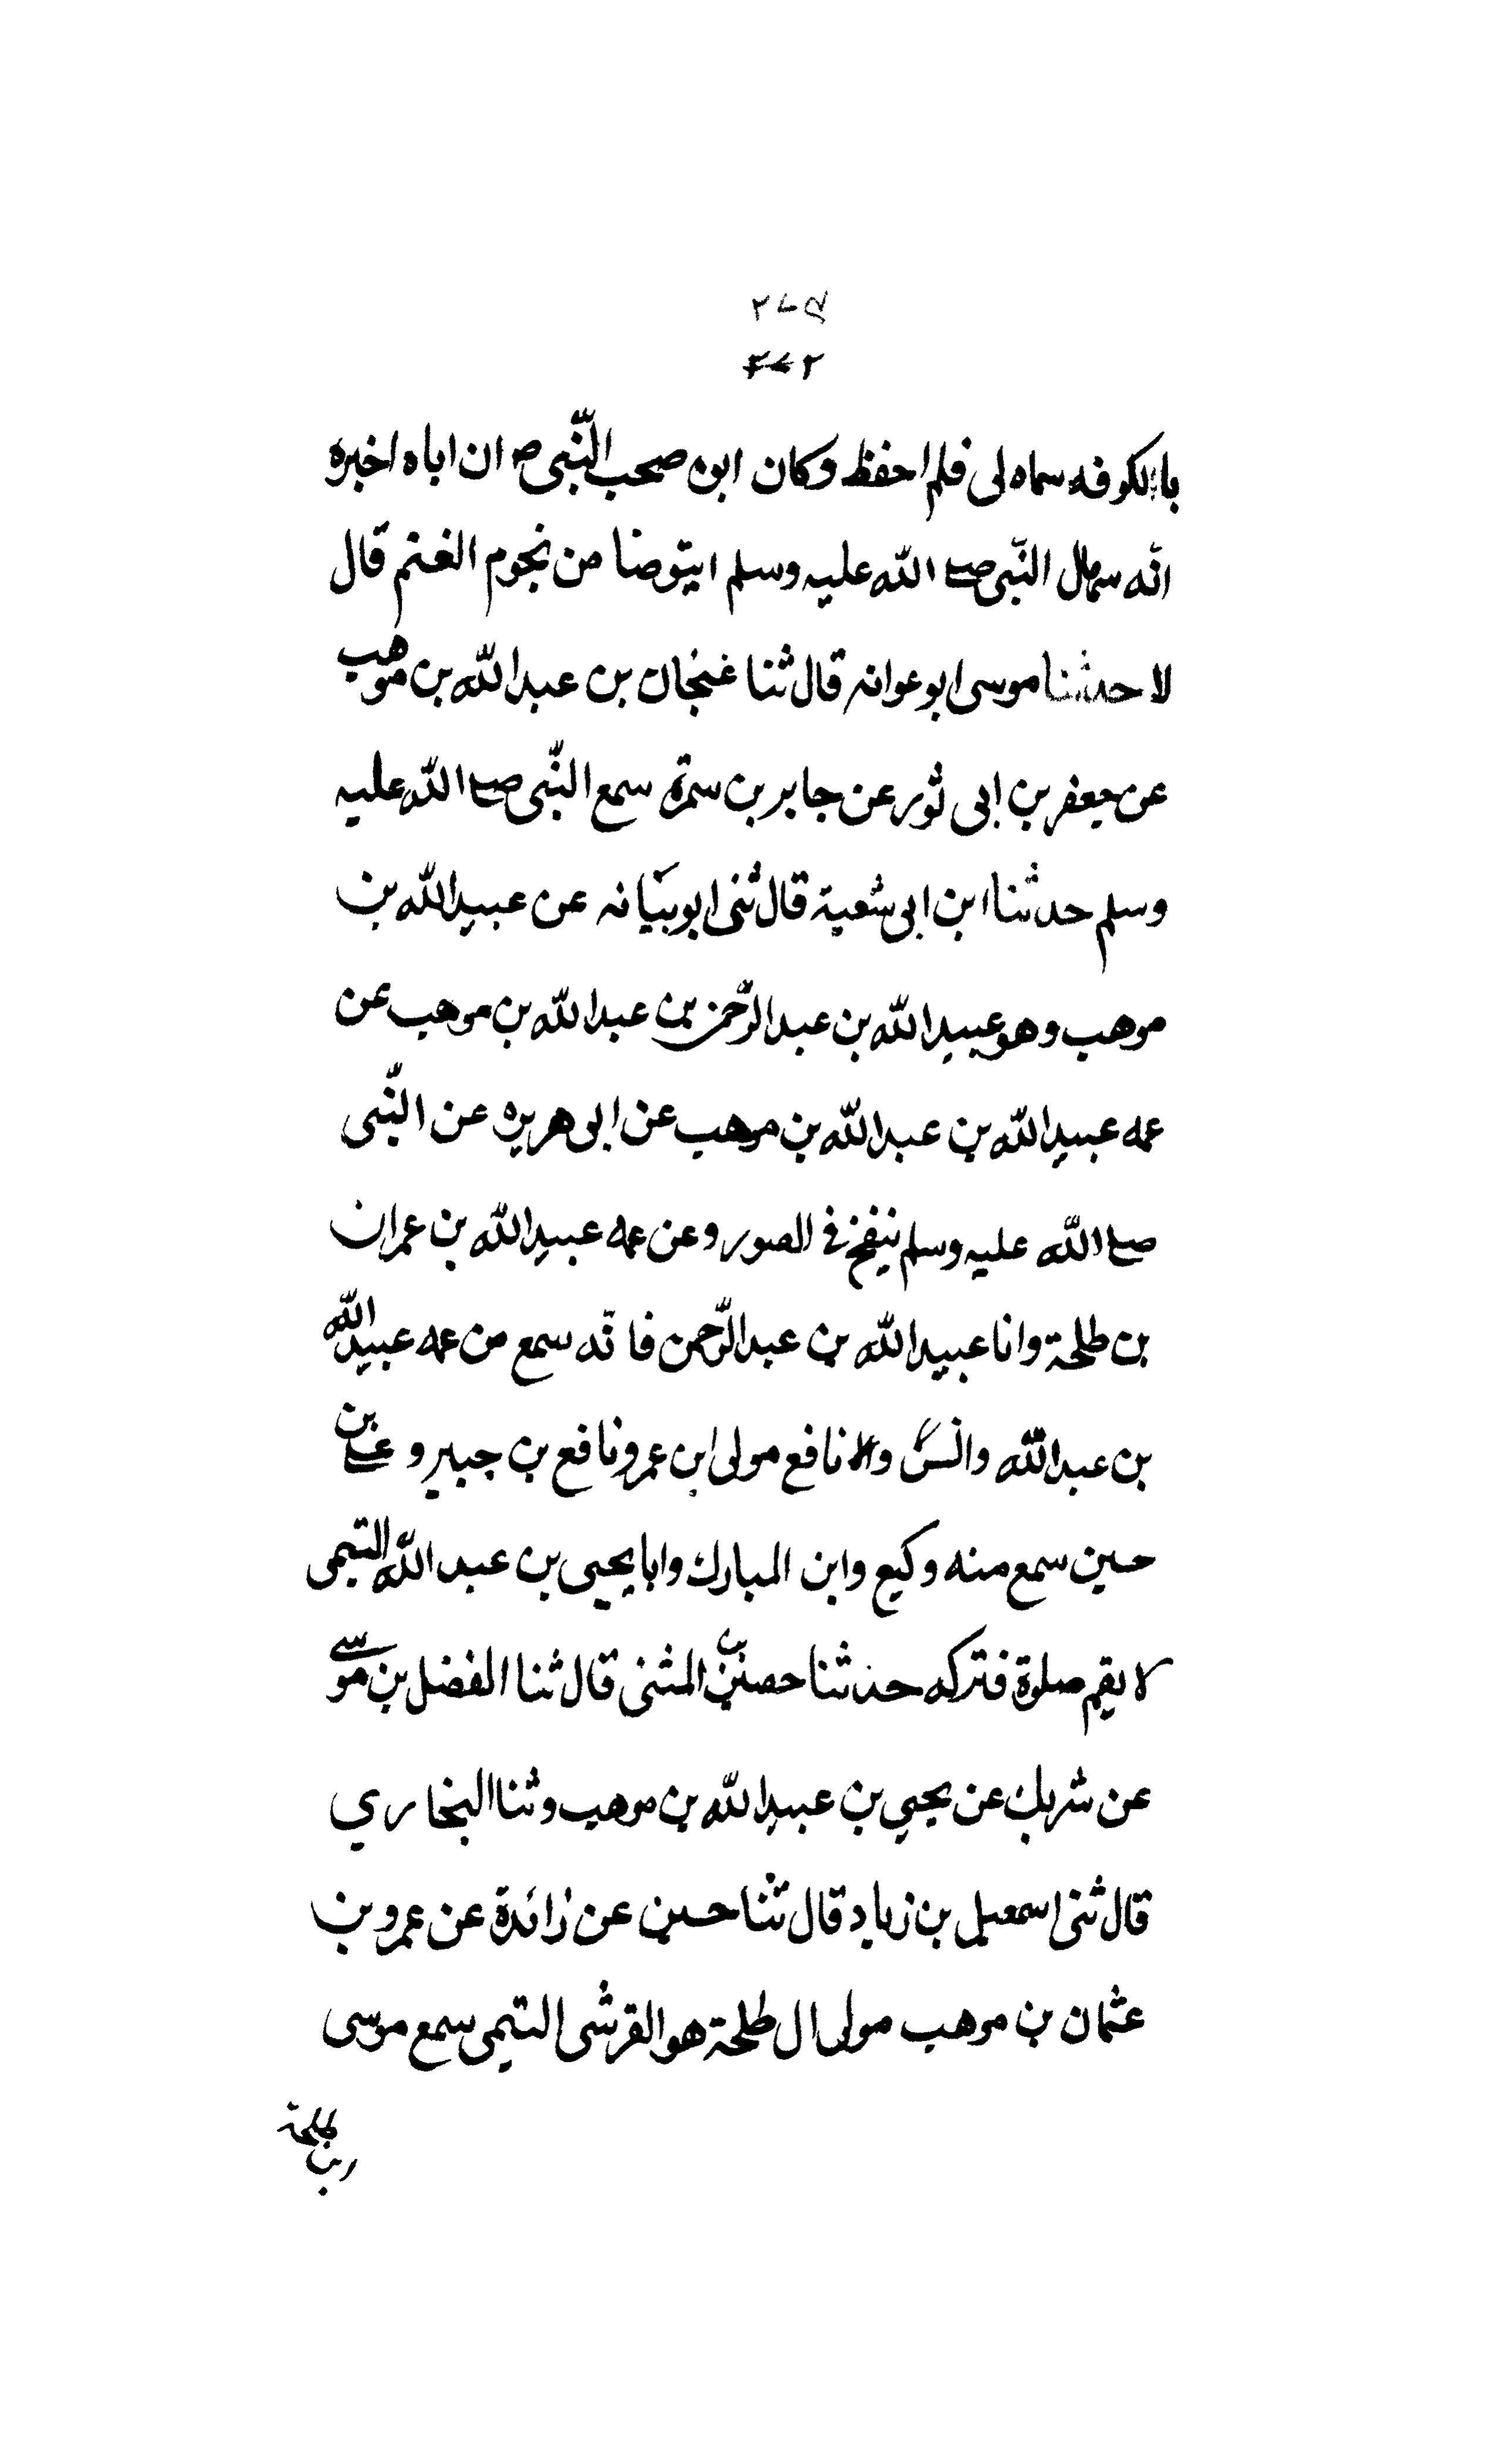 ٢٧٥
٢٧٢
بالكوفه سماه لى فلم احفظ وكان ابوه صحب النّبى ص ان اباه اخبره
انّه سال النّبى صلى الله عليه وسلم ايتوضا من نجوم الغنم قال
لا حدثنا موسى ابو عوانه قال ثنا غنجان بن عبد الله بن موهب
عن جعفر بن ابى ثور عن جابر بن سمرة سمع النّبى صلى الله عليه
وسلم حدثنا ابن ابى شعبة قال ثنى ابو عن عبيد الله بن
موهب وهو عبيد الله بن عبد الرّحمن بن عبد الله بن موهب عن
عمه عبيد الله بن عبد الله بن موهب عن ابى هريره عن النّبى
صلى الله عليه وسلم ينفخ فى الصور وعن عمه عبيد الله بن عمران
بن طلحة وانا عبيد الله بن عبد الرّحمن فانّه سمع من عمه عبيد الله
بن عبد الله وانس نافع مولى ابن عمر ونافع بن جبير و على بن
حسين سمع منه وكيع وابن المبارك وابا يحيى بن عبد الله التيمى
لا يقم صلوة فتركه حدثنا بن المثنى قال ثنا الفضل بن موسى
عن شريك عن يحيى بن عبيد الله بن موهب وثنا البخاري
قال ثنى اسمعيل بن زياد قال ثنا حسين عن زائدة عن عمرو بن
عثمان بن موهب مولى ال طلحة هو القرشى التيمى سمع موسى
بن طلحة